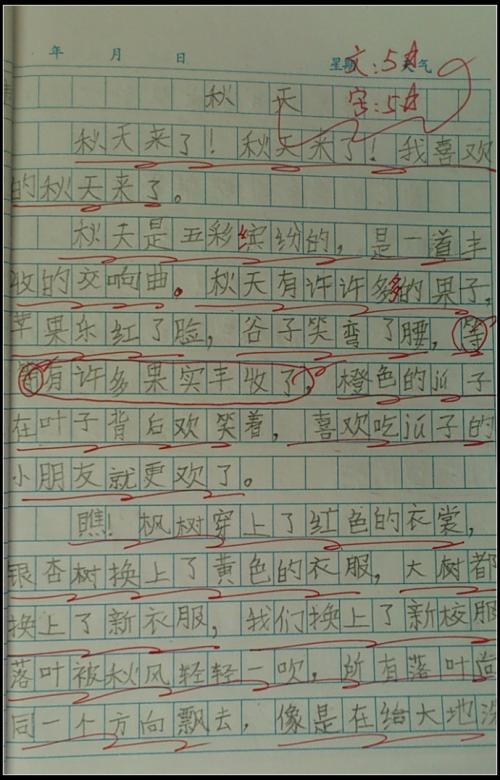 年 月 日 星期 天气
文:5☆
字:5☆
秋天
秋天来了！秋天来了！我喜欢
的秋天来了。
秋天是五彩缤纷的，是一道丰
收的交响曲。秋天有许许多的果子，
苹果乐红了脸，谷子笑弯了腰，等
等有许多果实丰收了，橙色的jú子
在叶子背后欢笑着，喜欢吃jú子的
小朋友就更欢了。
瞧！枫树穿上了红色的衣裳，
银杏树换上了黄色的衣服，大树都
换上了新衣服，我们换上了新校服
落叶被秋风轻轻一吹，所有落叶
同一个方向飘去，像是在给大地